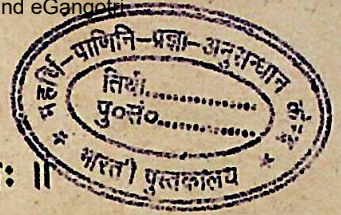 nd eGangotri
महर्षि-पाणिनि-प्रज्ञा-अनुसन्धान केन्द्र
तिथी..............
पु०सं०..............
* भारती पुस्तकालय *
ः ॥